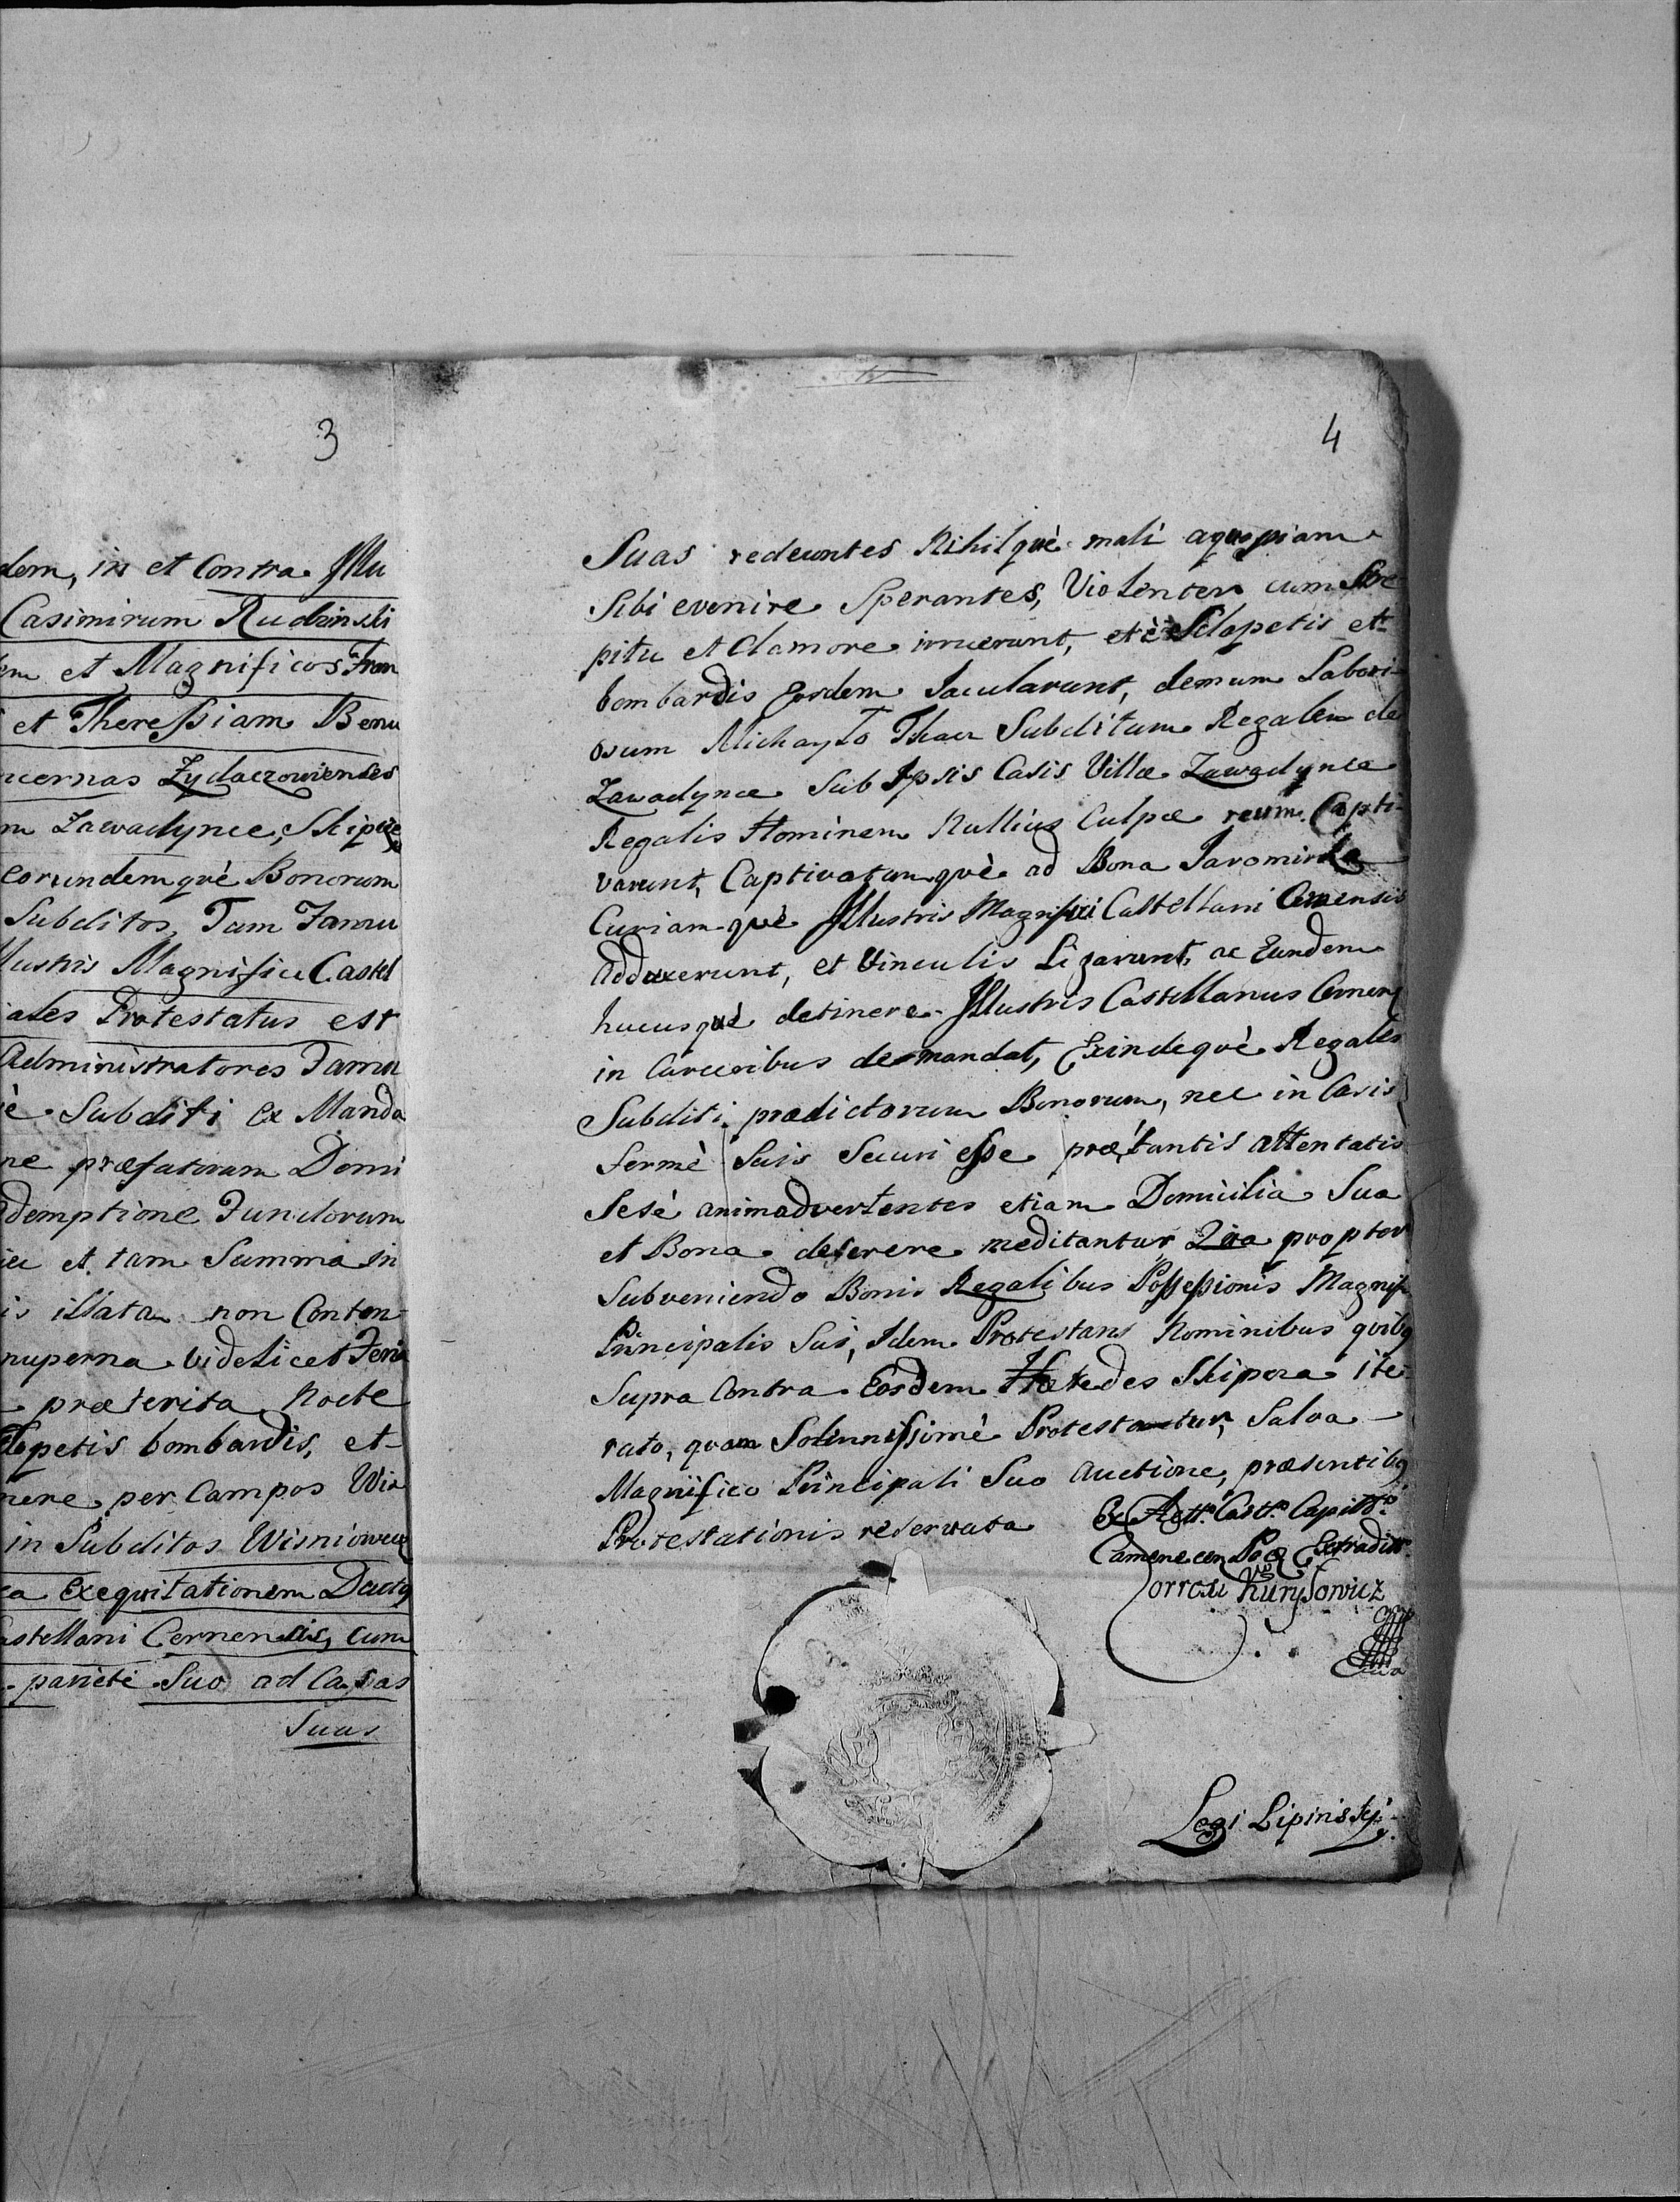 3
dem, in et Contra Illu
Casimirum Rudzinski
em et Magnificos Fran
et Theressiam Benu
ncernas Zydaczowienses
m Zawadynce, Skipcze
eorundemquè Bonorum
Subditos, Tam Famu
llustris Magnifici Castel
iales Protestatus est
Administratores Famu
è Subditi ex Manda
ne præfatorum Domi
demptione Fundorum
et tam Summa in
is illata non Conten-
nuperna videlicet Feria
præterita Nocte
lopetis bombardis, et
nere per Campos Wis
in Subditos Wisniowecz
ca exequitationem Ductq
astellani Cernensis, cum
pariete Suo ad Casas
Suas
4
Suas redeuntes Nihilquè mali aquopiam
Sibi evenire Sperantes, Violenter cum Stre
pitu et Clamore irruerunt, et è Sclopetis et
bombardis Eosdem Iacularunt, demum Labori-
osum Michayło Tkacz Subditum Regalem de
Zawadynce Sub Ipsis Casis Villæ Zawadynce
Regalis Hominem Nullius Culpæ reum Capti-
varunt, Captivatumquè ad Bona Jaromirka
Curiamquè Illustris Magnifici Castellani Cernensis
Adduxerunt, et Vinculis Ligarunt, ac Eundem
hucusquè detinere Illustris Castellanus Cernens
in Carceribus demandat, Exindequè Regales
Subditi prædictorum Bonorum, nec in Casis
fermè Suis Securi esse præstantis attentatis
Sesè animadvertentes etiam Domicilia Sua
et Bona deserere meditantur, Qua propter
Subveniendo Bonis Regalibus Possessionis Magnif
Principalis Sui, Idem Protestans Nominibus quibq
Supra Contra Eosdem Hæredes Skipcza ite-
rato, quam Solennissimè Protestatur, Salva
Magnifico Principali Suo Auctione, præsentibq
Protestationis reservata
Ex Actt. Castr. Capitt.
Camenecen Pod Extradit
Correxi Kurysowicz
Legi Lipinsky